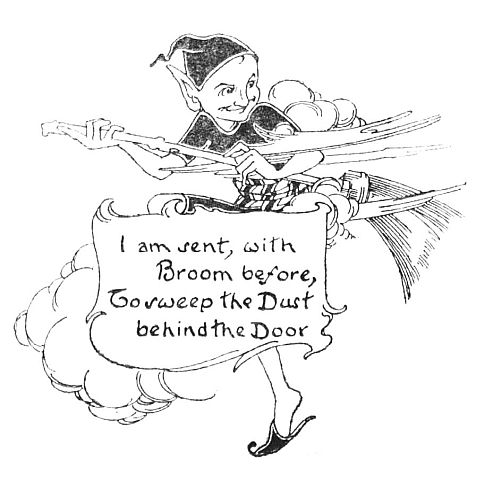 I am sent, with
Broom before,
To sweep the Dust
behind the Door